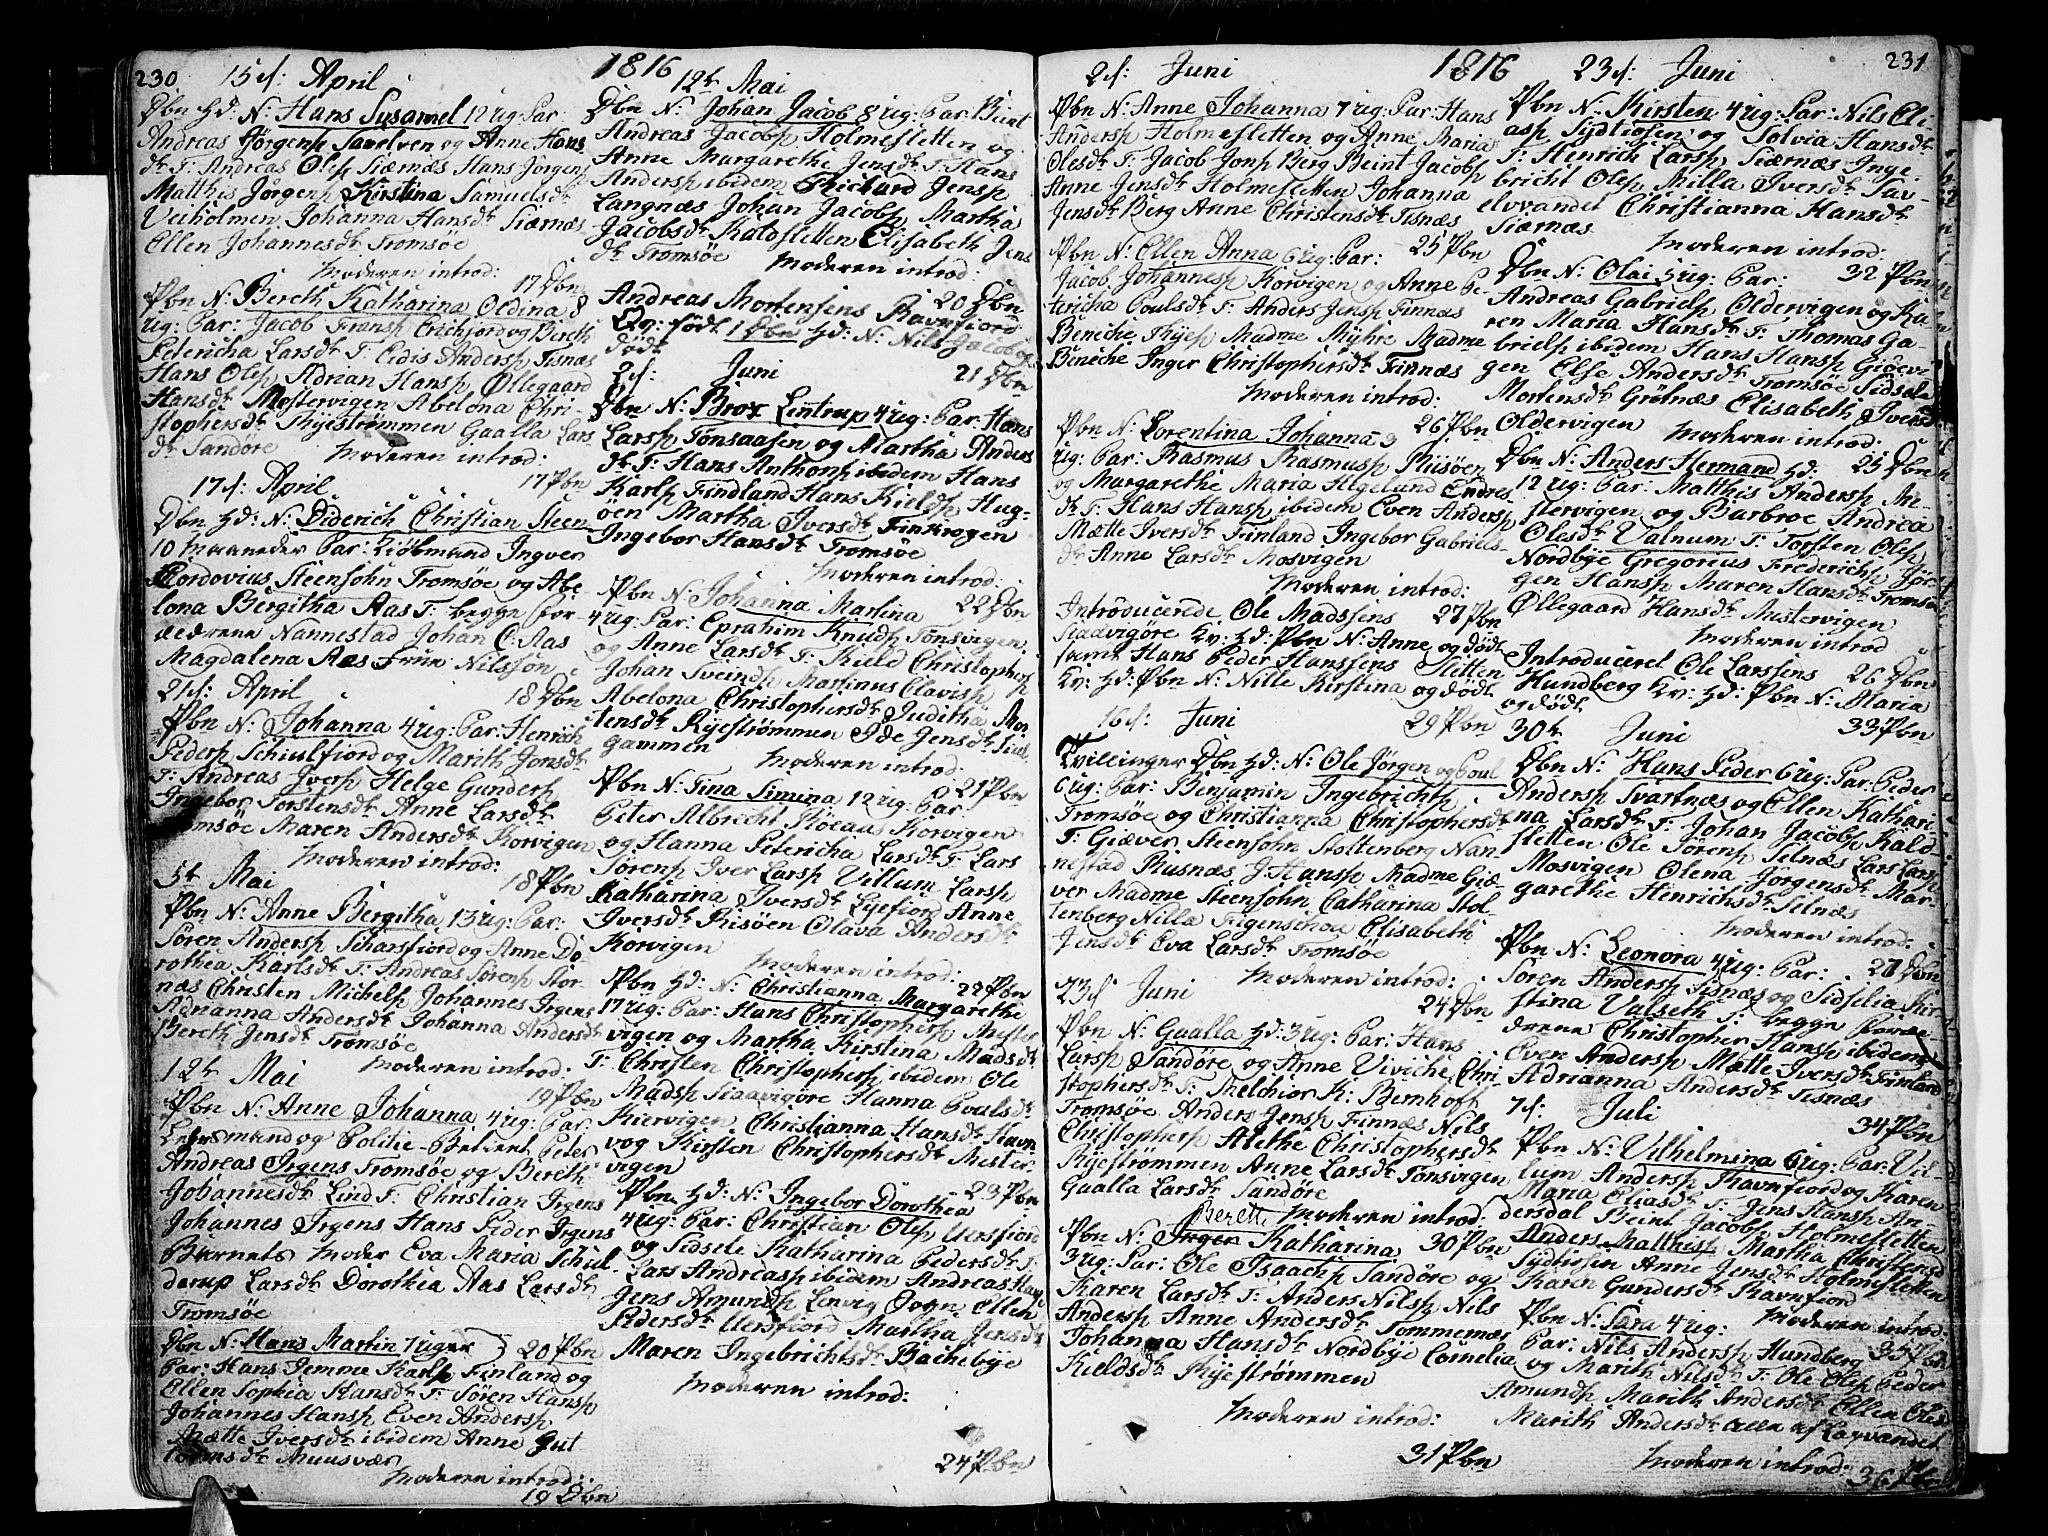 230. 15d: April
Dbn hd: N: Hans Susamel 12 ug: Par:
Andreas Jørgens Sanelven og Anne Hans
dt. F. Andreas Olsp Siærnæs Hans Jørgens
Matthis Jørgensp Kirstina Samuelsdt
Veiholmen Johanna Hansdt Siærnæs
Ellen Johannesdt Tromsøe
Moderen introd: 17 Dbn
Pbn N: Bereth Katharina Oldina 8
ug: Par: Jacob Fransp Erichfjord og Bereth
Petericha Larsdt F: Eedis Andersp Tisnæs
Hans Olsp Adrian Hansp Øllegaard
Hansdt Mestervigen Abelona Chri-
stophersdt Ryestrømmen Gaalla Lars
dt Sandøre Moderen introd:
17d: April 17 Pbn
Dbn hd: N: Diderich Christian Steen
10 Maaneder Par: Giøbmand Ingver
Cordovius Steensohn Tromsøe og Abe
lona Bergitha Aas F: begge for
ældrene Nannestad Johan C: Aas
Magdalena Aas Frue Nilsson
21d: April 18 Dbn
Pbn N: Johanna 4 ug: Par: Henrich
Pedersp Schiulfjord og Marith Jonsdt
F: Andreas Iversp Helge Gundersp
Ingebor Torstensdt Anne Larsdt
Tromsøe Maren Andersdt Korvigen
Moderen introd:
5t Mai 18 Pbn
Pbn N: Anne Bergitha 13 ug: Par:
Søren Andersp Scharsfjord og Anne Do
rothea Karlsdt F: Andreas Sørensp Stor
næs Christen Michelsp Johannes Irgens
Adrianna Andersdt Johanna Andersdt
Bereth Jensdt Tromsøe
Moderen introd:
12t Mai 19 Pbn
Pbn N: Anne Johanna 4 ug: Par.
Lehnsmand og Politie-Betient Peter
Andreas Irgens Tromsøe og Bereth
Johannesdt Lind F: Christian Irgens
Johannes Irgens Hans Peder Irgens
Barnets Moder Eva Maria Schul-
derup Larsdt Dorothea Aas Larsdt
Tromsøe
Dbn N: Hans Martin 7 uger 20 Pbn
Par: Hans Jemme Karlsp Finland og
Ellen Sophia Hansdt F: Søren Hansp
Johannes Hansp Even Andersp
Mætte Iversdt ibidem Anne Gut
tormsdt Muusvær
Moderen introd:
19 Dbn
1816
12t Mai
Dbn N: Johan Jacob 8 ug: Par: Beint
Andreas Jacobsp Holmesletten og
Anne Margarethe Jensdt F: Hans
Andersp ibidem Richard Jensp
Langnæs Johan Jacobsp Martha
Jacobsdt Kaldsletten Elisabeth Jens
dt Tromsøe Moderen introd:
Andreas Mortensens Ravnfjord 20 Dbn
Qv: født 1 Dbn hd: N: Nils Jacob og
død
2d: Juni 21 Dbn
Dbn N: Brox Lentrup 4 ug: Par: Hans
Larsp Tonsaasen og Martha Anders
dt F: Hans Anthonsp ibidem Hans
Karlsp Findland Hans Kieldsp Hug-
øen Martha Iversdt Finkrogen
Ingebor Hansdt Tromsøe
Moderen introd:
Pbn N: Johanna Martina 22 Dbn
4 ug: Par: Ephrahim Knudsp Tonsvigen
og Anne Larsdt F: Kield Christophersp
Johan Sveindsp Martinus Elavisp
Abelona Christophersdt Juditha Mor
tensdt Ryestrømmen Ide Jensdt Siul
gammen
Moderen introd:
Pbn N: Tina Simina 12 ug: Par: 21 Pbn
Peter Albrecht Køeaas Korvigen
og Hanna Petericha Larsdt F: Lars
Sørensp Iver Larsp Villum Larsp
Katharina Iversdt Lyefjord Anne
Iversdt Risøen Olava Andersdt
Korvigen
Moderen introd:
Pbn hd: N: Christianna Margarethe 22 Pbn
17 ug: Par: Hans Christophersp Mester
vigen og Martha Kirstina Madsdt
F: Christen Christophersp ibidem Ole
Madsp Skaavigøre Hanna Poulsdt
Kiervigen Christianna Hansdt Havn
vog Kirsten Christophersdt Mester
vigen
Pbn hd: N: Ingebor Dorothea 23 Pbn
4 ug: Par: Christian Olsp Uersfjord
og Sidsele Katharina Pedersdt F:
Lars Andreasp ibidem Andreas Hav
gens Amundsp Lenvig Ellen
Pedersdt Uersfjord Martha Jensdt
Maren Ingebrichtsdt Bachebye
Moderen introd:
24 Pbn
2d: Juni
Pbn N: Anne Johanna 7 ug: Par: Hans
Andersp Holmesletten og Anne Maria
Olesdt F: Jacob Jonsp Berg Beint Jacobsp
Anne Jensdt Holmesletten Johanna
Jensdt Berg Anne Christensdt Tisnæs
Pbn N: Ellen Anna 6 ug: Par: 25 Pbn
Jacob Johannesp Korvigen og Anne Pe
tericha Poulsdt F: Anders Jensp Finnæs
Beneche Ryesp Madme Myhre Madme
Beneche Inger Christophersdt Finnæs
Moderen introd:
Pbn N: Lorentina Johanna 3 26 Pbn
ug: Par: Rasmus Rasmusp Riisøen
og Margarethe Maria Algelund Endres
dt F: Hans Hansp ibidem Even Andersp
Mætte Iversdt Finland Ingebor Gabriels-
dt Anne Larsdt Mosvigen
Moderen introd:
Introducerede Ole Madssens 27 Pbn
Skaavigøre Kv: hd: Pbn N: Anne og dødt
samt Hans Peder Hanssens Sletten
Kv: hd: Pbn N: Nille Kirstina og dødt
16d: Juni 29 Pbn
Tvillinger Dbn hd: N: Ole Jørgen og Poul
6 ug: Par: Benjamin Ingebrichtsp
Tromsøe og Christianna Christophersdt
F: Giæver Steensohn Stoltenberg Nan-
nestad Rusnæs J: Hansp Madme Giæ-
ver Madme Steensohn Catharina Stol-
tenberg Nilla Figenschou Elisabeth
Jensdt Eva Larsdt Tromsøe
Moderen introd:
23d Juni 24 Dbn
Pbn N: Gaalla hd: 3 ug: Par: Hans
Larsp Sandøre og Anne Viviche Chri
stophersdt F: Melchior K: Bernhoft
Tromsøe Anders Jensp Finnæs Nils
Christophersp Alethe Christophersdt
Ryestrømmen Anne Larsdt Tonsvigen
Gaalla Larsdt Sandøre
Bereth Moderen introd:
Pbn N: Irgen Katharina 30 Pbn
3 ug: Par: Ole Isaachsp Sandøre og
Karen Larsdt F: Anders Nilsp Nils
Andersp Anne Andersdt Tommernæs
Johanna Hansdt Nordbye Cornelia
Kieldsdt Ryestrømmen
Moderen introd:
31 Pbn
1816 23d: Juni 231
Pbn N: Kirsten 4 ug: Par: Nils Eli-
asp Sydtiosen og Solvia Hansdt
F: Henrich Larsp Siærnæs Inge-
bricht Olsp Milla Iversdt Sav-
elvvandet Christianna Hansdt
Siærnæs
Moderen introd:
Dbn N: Olai 5 ug: Par: 32 Pbn
Andreas Gabrielsp Oldervigen og Ka
ren Maria Hansdt F: Thomas Ga-
brielsp ibidem Hans Hansp Giøevi-
gen Else Andersdt Tromsøe Sidsele
Mortensdt Grøtnæs Elisabeth Iversdt
Oldervigen
Moderen introd:
Dbn N: Anders Hermand hd: 25 Dbn
12 ug: Par: Matthis Andersp Me-
stervigen og Barbroe Andrea
Olesdt Valnum F: Torsten Olsp
Nordbye Gregorius Frederichsp Jør-
gen Hansp Maren Hansdt Tromsøe
Øllegaard Hansdt Mestervigen
Moderen introd
Introduceret Ole Larssens 26 Dbn
Hundberg Kv: hd: Pbn N: Maria
og dødt
30t Juni 33 Pbn
Dbn N: Hans Peder 6 ug: Par: Peder
Andersp Svartnæs og Ellen Kathari-
na Larsdt F: Johan Jacobsp Kald-
sletten Ole Sørensp Selnæs Lars Larsp
Mosvigen Olena Jørgensdt Mar-
garethe Henrichsdt Selnæs
Moderen introd:
Pbn N: Leonora 4 ug: Par: 27 Dbn
Søren Andersp Tisnæs og Sidselia Kir-
stina Valseth F: begge foræl-
drene Christopher Hansp ibidem
Even Andersp Mætte Iversdt Finland
Adrianna Andersdt Tisnæs
7d: Juli 34 Pbn
Pbn N: Vilhelmina 6 ug: Par: Vil-
lum Andersp Ravnfjord og Karen
Maria Eliasdt F: Jens Hansp An-
dersdal Beint Jacobsp Holmesletten
Anders Matthisp Martha Christensdt
Sydtiosen Anne Jensdt Holmesletten
Karen Gundersdt Ravnfjord
Moderen introd:
Pbn N: Sara 4 ug: 35 Pbn
Par: Nils Andersp Hundberg
og Marith Nilsdt F: Ole Olsp Peder
Amundsp Marith Andersdt Ellen Olesdt
Marith Andersdt alle af Laxvandet
Moderen introd:
36 Pbn